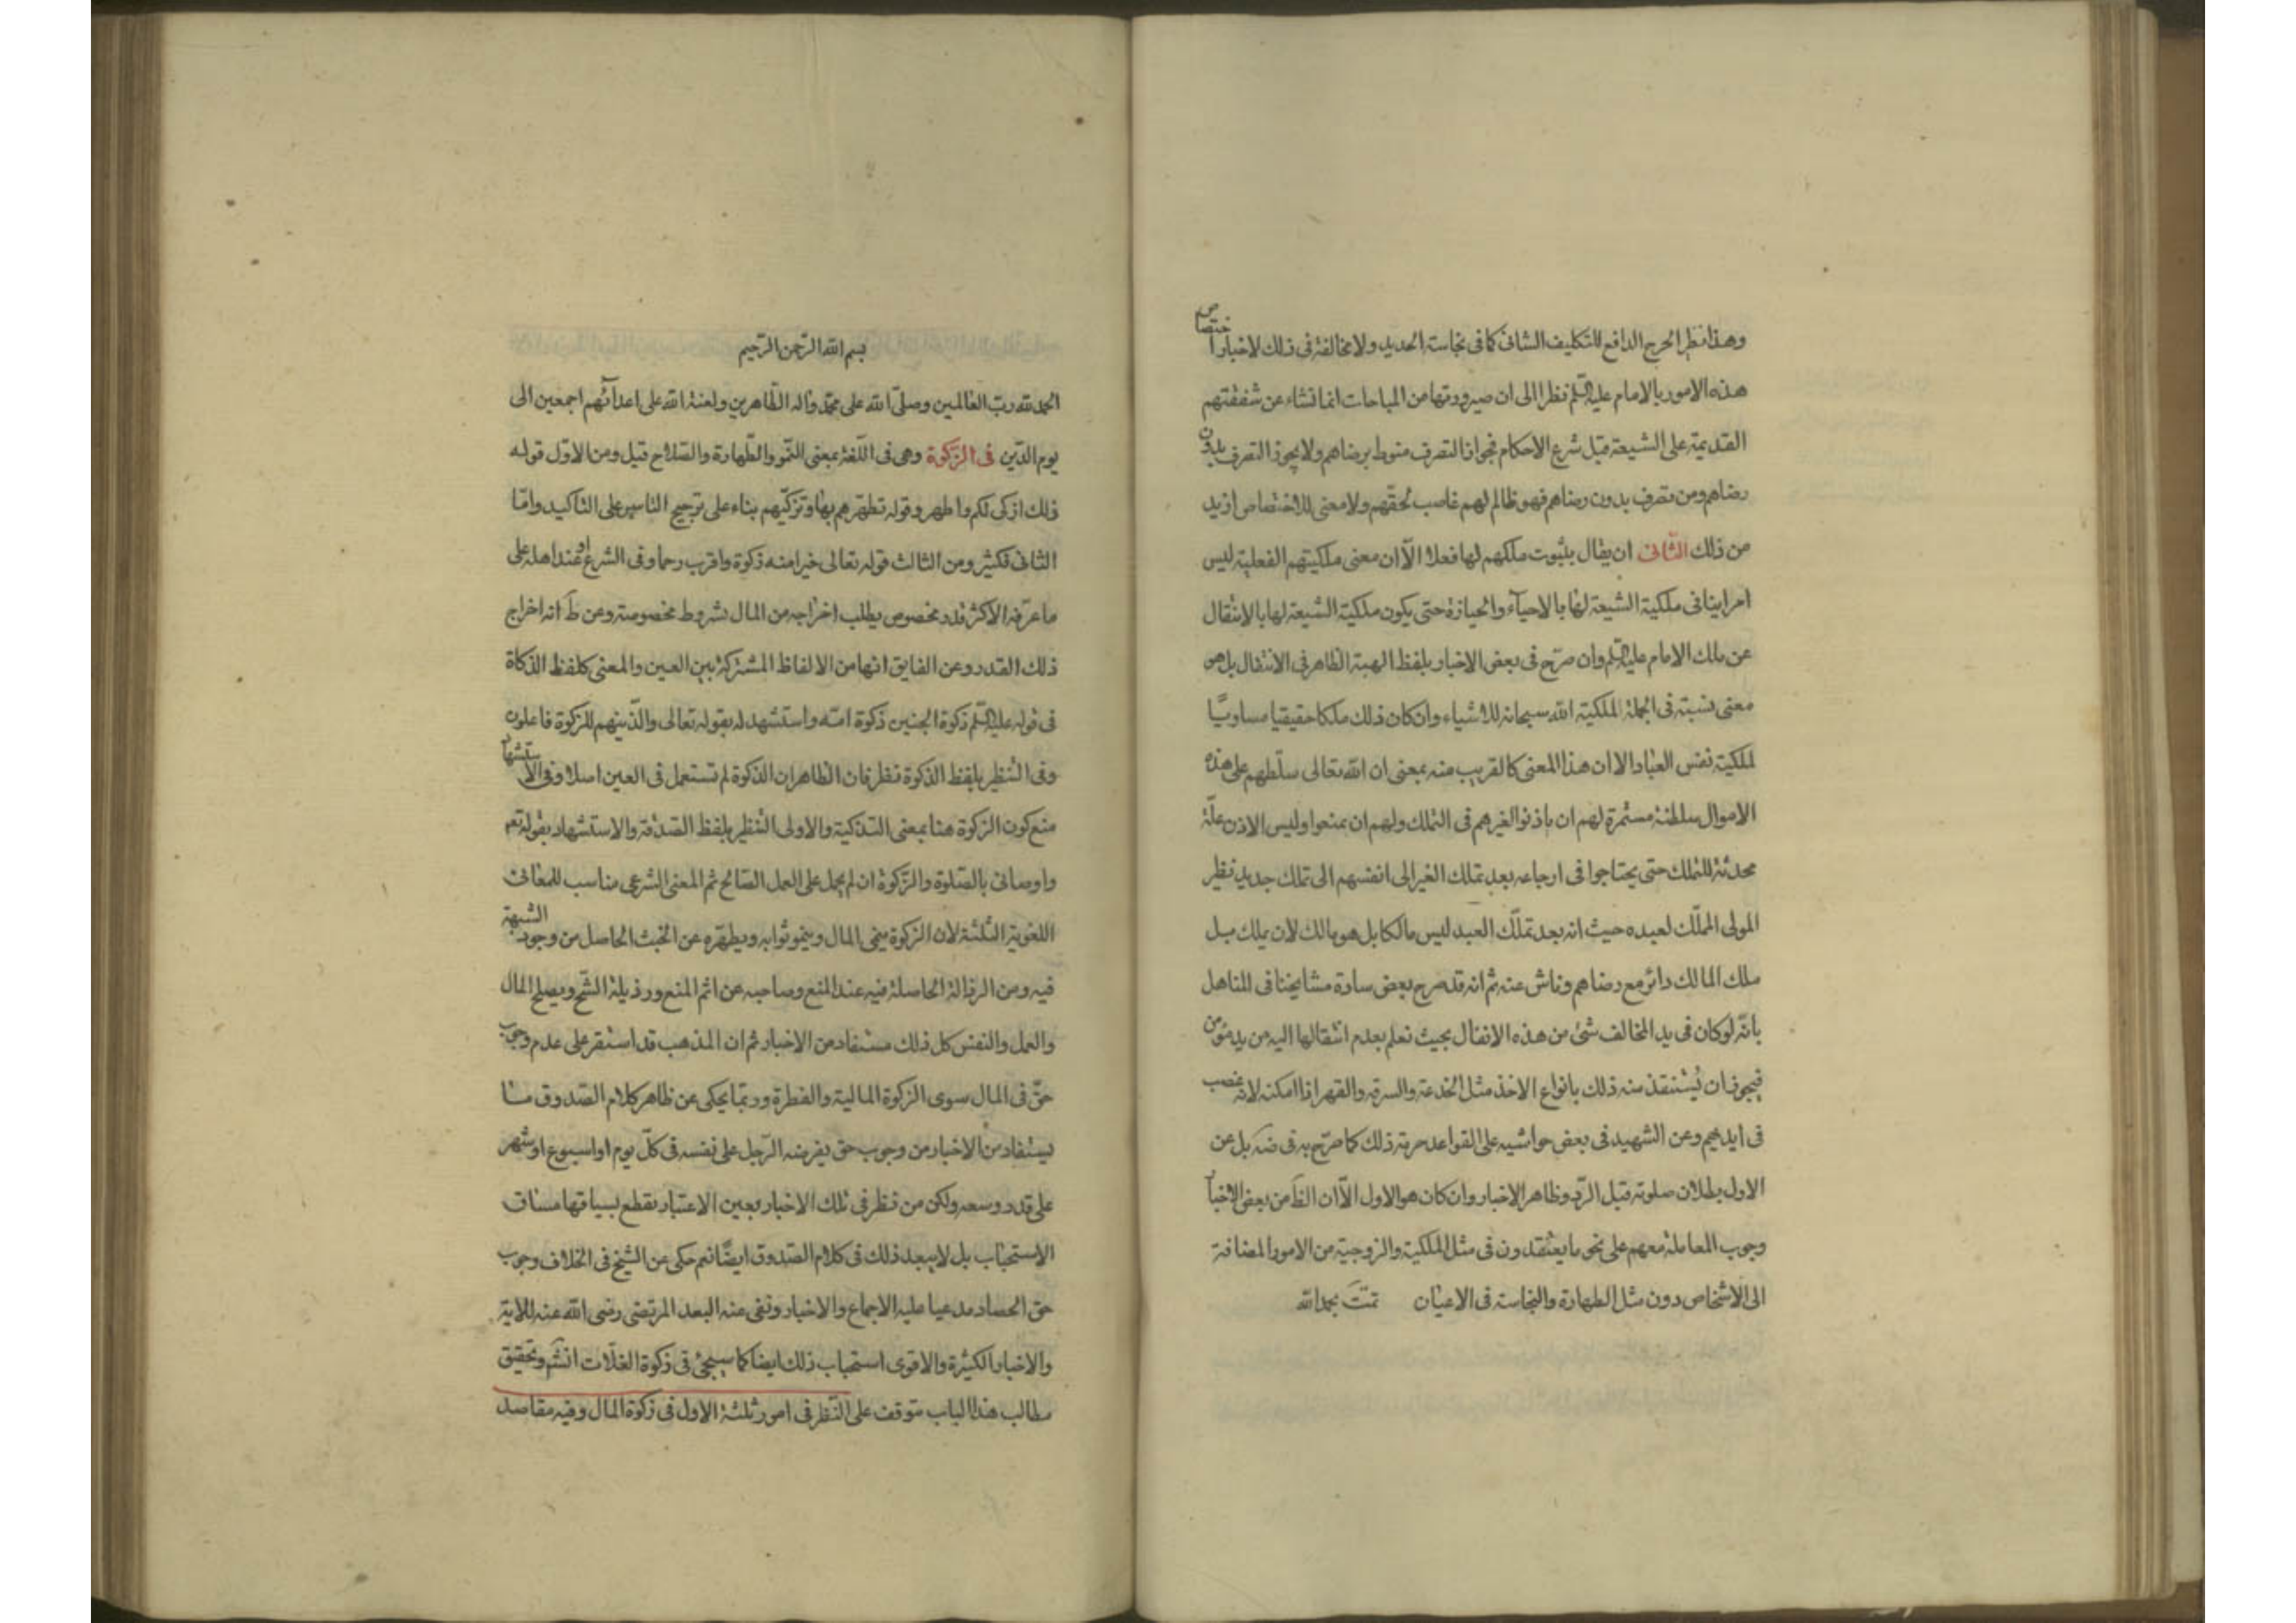 وهذا نظير الحرج الدافع للتكليف الشاق كما فى نجاسة الحديد ولا مخالفة فى ذلك لاخبار اختصاص
هذه الامور بالامام عليه السلم نظرا الى ان صيرورتها من المباحات انما تنشاء عن شفقتهم
القديمة على الشيعة قبل شرع الاحكام فجواز التصرف منوط برضاهم ولا يجوز التصرف بدون
رضاهم ومن تصرف بدون رضاهم فهو ظالم لهم غاصب لحقهم ولا معنى للاختصاص ازيد
من ذلك الثانى ان يقال بثبوت ملكهم لها فعلا الا ان معنى ملكيتهم الفعلية ليس
امرا ينافى ملكية الشيعة لها بالاحياء والحيازة حتى يكون ملكية الشيعة لها بالانتقال
عن ملك الامام عليه السلم وان صرّح فى بعض الاخبار بلفظ الهبة الظاهر فى الانتقال بل هو
معنى نسبته فى الجملة الملكية الله سبحانه للاشياء وان كان ذلك ملكا حقيقيا مساويّا
لملكية نفس العباد الا ان هذا المعنى كالقريب منه بمعنى ان الله تعالى سلّطهم على هذه
الاموال سلطنة مستمرة لهم ان ياذنوا لغيرهم فى التملك ولهم ان يمنعوا وليس الاذن علّة
محدثة للتملك حتى يحتاجوا فى ارجاعه بعد تملك الغير الى انفسهم الى تملك جديد نظير
المولى المملّك لعبده حيث انه بعد تملّك العبد ليس مالكا بل هو مالك لان يملك بل
ملك المالك دائر مع رضاهم وناش عنه ثم انه قد صرح بعض سادة مشايخنا فى المناهل
بانّه لو كان فى يد المخالف شئ من هذه الانفال بحيث نعلم بعدم انتقالها اليه من يد مؤمن
فيجوز ان يُستنقذ منه ذلك بانواع الاخذ مثل الخدعة والسرقة والقهر اذا امكنه لانه غصب
فى ايديهم وعن الشهيد فى بعض حواشيه على القواعد حرمة ذلك كما صرّح به فى ضه بل عن
الاول بطلان صلوته قبل الرّد وظاهر الاخبار وان كان هو الاول الّا ان الظَ من بعض الاخبار
وجوب المعاملة معهم على نحو ما يعتقدون فى مثل الملكية والزوجية من الامور المضافة
الى الاشخاص دون مثل الطهارة والنجاسة فى الاعيان تمّت بحمد الله
بسم الله الرّحمن الرّحيم
الحمد لله ربّ العالمين وصلّى الله على محمّد واله الطّاهرين ولعنة الله على اعدائهم اجمعين الى
يوم الدّين فى الزكوة وهى فى اللّغة بمعنى النّمو والطّهارة والصّلاح قيل ومن الاوّل قوله
ذلك ازكى لكم واطهر وقوله تطهّرهم بها وتزكّيهم بناء على ترجيح التاسيس على التاكيد وامّا
الثانى فكثير ومن الثالث قوله تعالى خيرا منه زكوة واقرب رحما وفى الشرع او عند اهله على
ما عرّفه الاكثر قدر مخصوص يطلب اخراجه من المال بشروط مخصوصة وعن طَ انه اخراج
ذلك القدر وعن الفايق انها من الالفاظ المشتركة بين العين والمعنى كلفظ الذكاة
فى قوله عليه السلم ذكوة الجنين ذكوة امّه واستشهد له بقوله تعالى والّذينهم للزكوة فاعلون
وفى التنظير بلفظ الذكوة نظر فان الظاهر ان الذكوة لم تستعمل فى العين اصلا وفى الاستشهاد
منع كون الزكوة هنا بمعنى التذكية والاولى التنظير بلفظ الصدقة والاستشهاد بقوله تعم
واوصانى بالصّلوة والزّكوة ان لم يحمل على العمل الصّالح ثم المعنى الشرعى مناسب للمعانى
اللغوية الثلثة لان الزكوة ينمى المال وينمو ثوابه ويطهّره عن الخبث الحاصل من وجود الشبهة
فيه ومن الرذالة الحاصلة فيه عند المنع وصاحبه عن اثم المنع ورذيلة الشّح ويصلح المال
والعمل والنفس كل ذلك مستفاد من الاخبار ثم ان المذهب قد استقر على عدم وجوب
حقّ فى المال سوى الزكوة المالية والفطرة وربّما يحكى عن ظاهر كلام الصّدوق ما
يستفاد من الاخبار من وجوب حق يفرضه الرّجل على نفسه فى كلّ يوم او اسبوع او شهر
على قدر وسعه ولكن من نظر فى تلك الاخبار بعين الاعتبار يقطع بسياقها مساق
الاستحباب بل لا يبعد ذلك فى كلام الصّدوق ايضًا نعم حكى عن الشيخ فى الخلاف وجوب
حق الحصاد مدعيا عليه الاجماع والاخبار ونفى عنه البعد المرتضى رضى الله عنه للاية
والاخبار الكثيرة والاقوى استحباب ذلك ايضا كما سيجئ فى زكوة الغلّات انشَم وتحقيق
مطالب هذا الباب متوقف على النّظر فى امور ثلثة الاول فى زكوة المال وفيه مقاصد